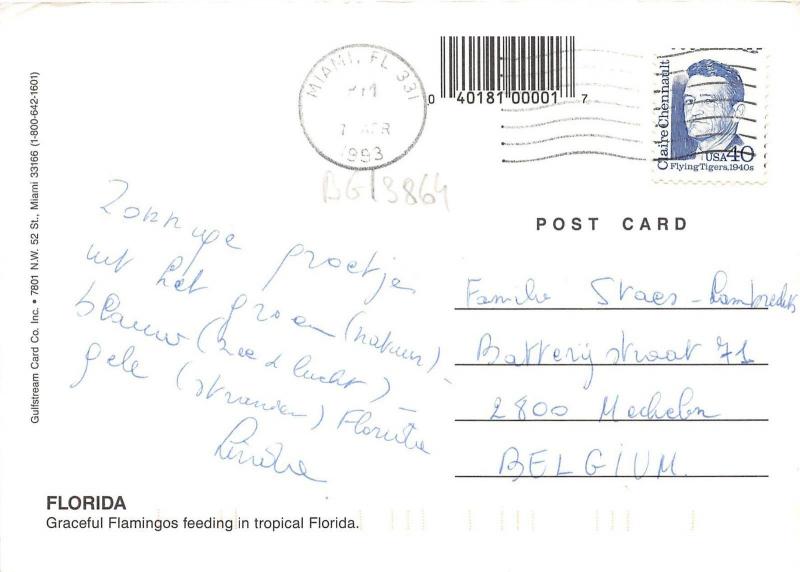 Gulfstream Card Co. Inc. • 7801 N.W. 52 St., Miami 33166 (1-800-642-1601)
MIAMI, FL 331
PM
APR
1993
0 40181 00001 7
Claire Chennault
USA 40
Flying Tigers, 1940s
BG13864
POST CARD
Zonnige groetjes
uit het groen (natuur) -
blauw (zee & lucht) -
gele (stranden) Florida
Familie Staes - Lambrechts
Batterijstraat 71
2800 Mechelen
BELGIUM
FLORIDA
Graceful Flamingos feeding in tropical Florida.